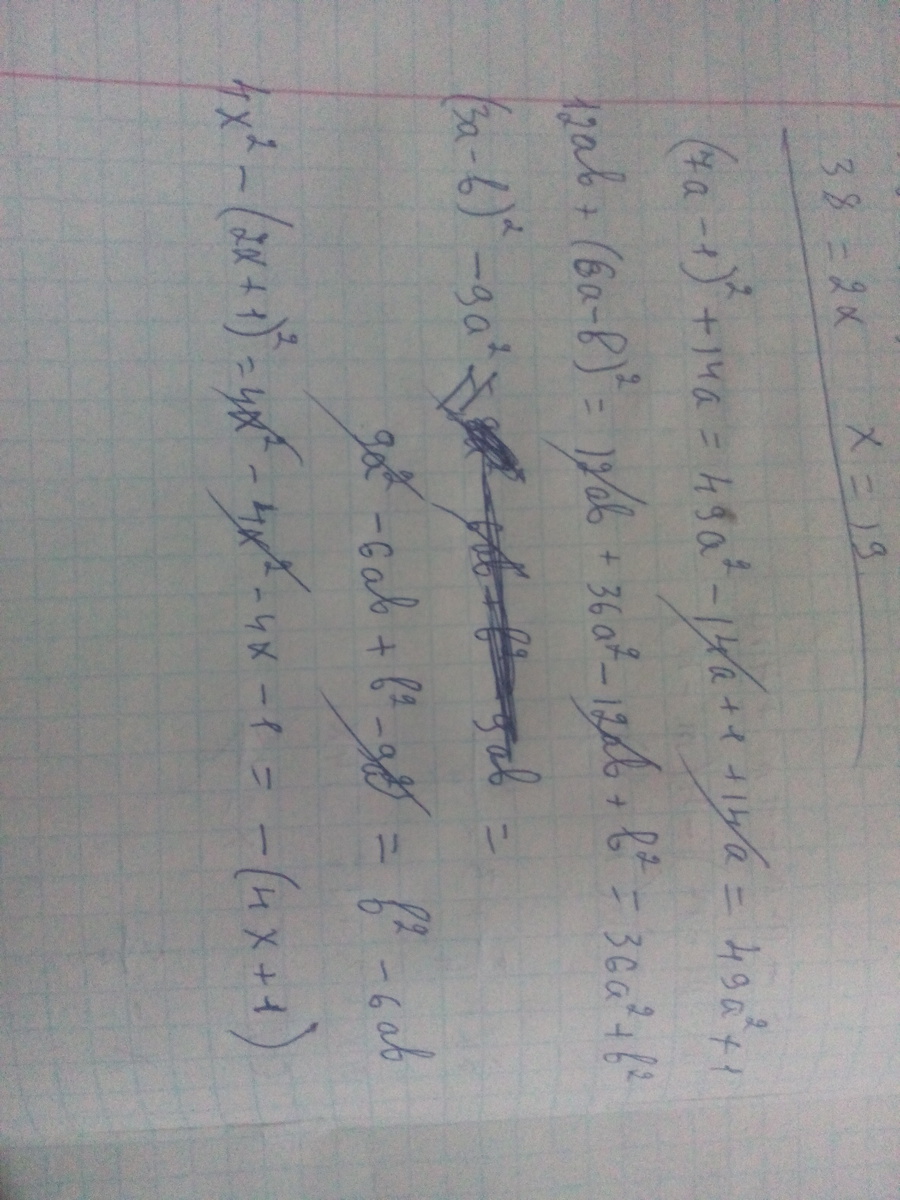 38 = 2x   x = 19
(7a - 1)² + 14a = 49a² - 14a + 1 + 14a = 49a² + 1
12ab + (6a - b)² = 12ab + 36a² - 12ab + b² = 36a² + b²
(3a - b)² - 9a² =
9a² - 6ab + b² - 9a² = b² - 6ab
4x² - (2x + 1)² = 4x² - 4x² - 4x - 1 = -(4x + 1)